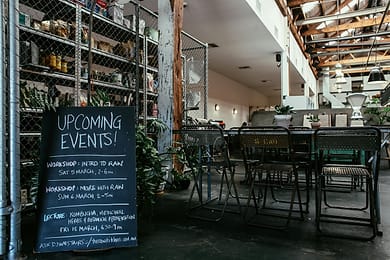 UPCOMING
EVENTS!
WORKSHOP: INTRO TO RAW
SAT 5 MARCH, 2-6PM
WORKSHOP: MORE WITH RAW
SUN 6 MARCH, 2-5PM
LECTURE: KOMBUCHA, MEDICINAL
HERBS &
FRI 18 MARCH, 6:30-9PM
ASK DOWNSTAIRS